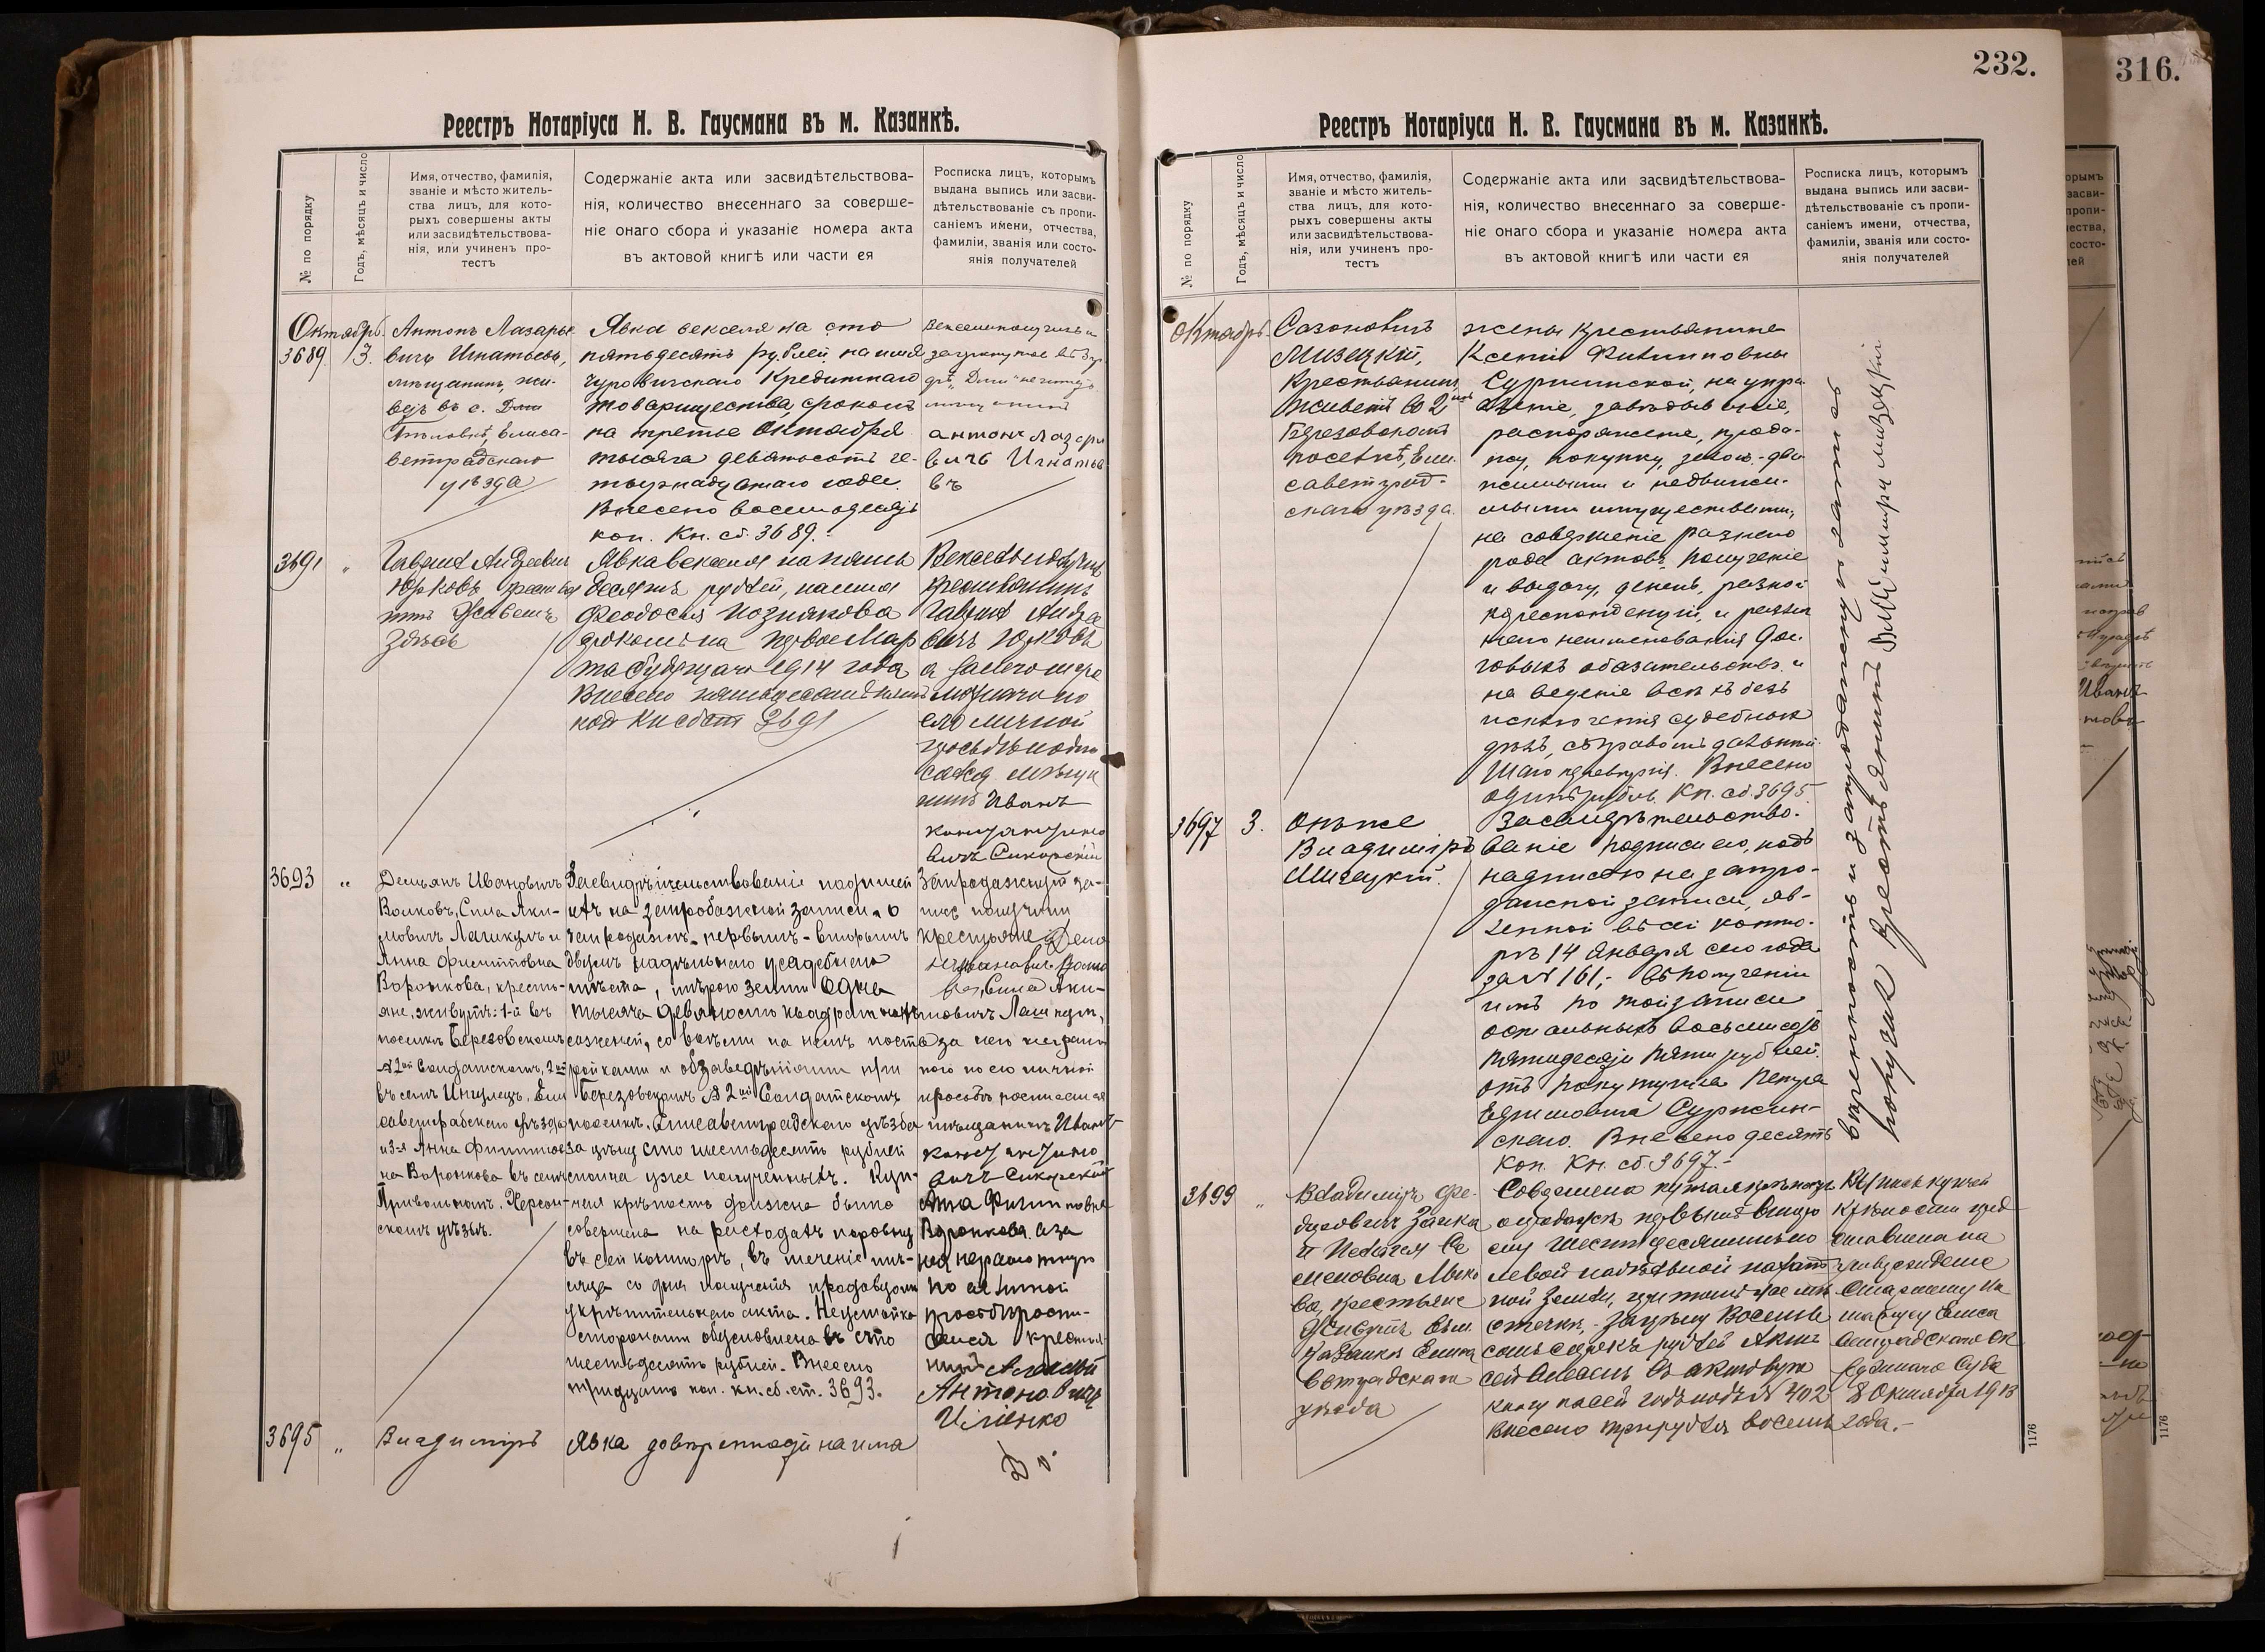 Реестръ Нотаріуса Н. В. Гаусмана въ м. Казанкѣ.
№ по порядку
Годъ, мѣсяцъ и число
Имя, отчество, фамилія,
званіе и мѣсто житель-
ства лицъ, для кото-
рыхъ совершены акты
или засвидѣтельствова-
нія, или учиненъ про-
тестъ
Содержаніе акта или засвидѣтельствова-
нія, количество внесеннаго за соверше-
ніе онаго сбора и указаніе номера акта
въ актовой книгѣ или части ея
Росписка лицъ, которымъ
выдана выпись или засви-
дѣтельствованіе съ пропи-
саніемъ имени, отчества,
фамиліи, званія или состо-
янія получателей
Октябрь.
3689. 3.
Антонъ Лазарье
вичъ Игнатьевъ,
мѣщанинъ, жи-
ветъ въ с.
Елиса-
ветградскаго
уѣзда
Явка векселя на сто
пятьдесятъ рублей, на имя
Кредитнаго
товарищества, срокомъ
на третье Октября
тысяча девятьсотъ че-
тырнадцатаго года.
Внесено восемьдесятъ
коп. Кн. сб. 3689.
Антонъ Лазаре
вичъ Игнатье
въ
3691 "
Гавріилъ Андреевичъ
Юрковъ
Живетъ
здѣсь
Явка векселя на пять
десятъ рублей, на имя
Феодосія Познякова
срокомъ на первое Мар
та будущаго 1914 года
Внесено пятьдесятъ пять
коп Кн сб ст 3691
Вексель получилъ
крестьянинъ
Гавріилъ Андре
евичъ Юрковъ
а за него негра
мотнаго по
его личной
просьбѣ
мѣща
нинъ Иванъ
Константино
вичъ Сикорскій
3693 "
Демьянъ Ивановичъ
Волковъ, Сила Яки-
мовичъ Лашкулъ и
Анна Филипповна
Воронкова, кресть-
яне, живутъ: 1-й въ
поселкѣ Березовскомъ
№ 2ой Солдатскомъ, 2ой
въ селѣ Ингулецъ, Ели
саветградскаго уѣзда
и 3-я Анна Филиппов
на Воронкова въ селѣ
Привольномъ, Херсон-
скомъ уѣздѣ.
Засвидѣтельствованіе подписей
ихъ на запродажной записи о
запродажѣ первымъ - вторымъ
двумъ надѣльнаго усадебнаго
мѣста, мѣрою земли одна
тысяча девяносто квадратныхъ
саженей, со всѣми на немъ пост
ройками и обзаведеніями при
Березовскомъ № 2ой Солдатскомъ
поселкѣ, Елисаветградскаго уѣзда
за цѣну сто шестьдесятъ рублей
сполна уже полученныхъ. Куп-
чая крѣпость должна быть
совершена на расходахъ поровну
въ сей конторѣ, въ теченіе мѣ-
сяца со дня полученія продавцомъ
укрѣпительнаго акта. Неустойка
сторонами обусловлена въ сто
шестьдесятъ рублей. Внесено
тридцать коп. кн. сб. ст. 3693.
Запродажную за-
пись получили
крестьяне Демья
нъ Ивановичъ Волко
въ, Сила Яки-
мовичъ Лашкулъ,
а за него неграмот
наго по его личной
просьбѣ росписался
мѣщанинъ Иванъ
Константино
вичъ Сикорскій
Анна Филипповна
Воронкова, а за
нея неграмотную
по ея личной
просьбѣ роспи-
сался крестья
нинъ Алексѣй
Антоновичъ
Ильенко
3695 "
Владиміръ
Явка довѣренности на имя
232.
Реестръ Нотаріуса Н. В. Гаусмана въ м. Казанкѣ.
№ по порядку
Годъ, мѣсяцъ и число
Имя, отчество, фамилія,
званіе и мѣсто житель-
ства лицъ, для кото-
рыхъ совершены акты
или засвидѣтельствова-
нія, или учиненъ про-
тестъ
Содержаніе акта или засвидѣтельствова-
нія, количество внесеннаго за соверше-
ніе онаго сбора и указаніе номера акта
въ актовой книгѣ или части ея
Росписка лицъ, которымъ
выдана выпись или засви-
дѣтельствованіе съ пропи-
саніемъ имени, отчества,
фамиліи, званія или состо-
янія получателей
Октябрь.
Сазоновичъ
Мизецкій,
крестьянинъ,
живетъ во 2омъ
Березовскомъ
поселкѣ, Ели-
саветград-
скаго уѣзда.
жены крестьянина
Ксеніи Филипповны
Суржинской, на упра
вленіе, завѣдываніе,
распоряженіе, прода-
жу, покупку, залогъ дви
жимыми и недвижи-
мыми имуществами,
на совершеніе разнаго
рода актовъ, полученіе
и выдачу денегъ, разной
корреспонденціи, и разна
го наименованія дол
говыхъ обязательствъ и
на веденіе всѣхъ безъ
исключенія судебныхъ
дѣлъ, съ правомъ дальнѣй
шаго передовѣрія. Внесено
одинъ рубль. Кн. сб. 3695.
3697 3.
Онъ же
Владиміръ
Мизецкій.
Засвидѣтельство-
ваніе подписи его, подъ
надписью на запро-
дажной записи, яв-
ленной въ сей конто-
рѣ 14 Января сего года
за № 161, въ полученіи
имъ по той записи
остальныхъ восьмисотъ
пятидесяти пяти рублей
отъ покупщика Петра
Ефимовича Суржин-
скаго. Внесено десять
коп. Кн. сб. 3697.-
довѣренность и запродажную запись
получилъ крестьянинъ Владиміръ Мизецкій
3699 "
Владиміръ Фе-
доровичъ Заика
и Пелагея Се
меновна Лыко
ва, крестьяне
живутъ въ м.
Казанкѣ Елиса
ветградскаго
уѣзда
Совершена купчая крѣпость
о продажѣ первымъ второ
й
надѣльной
ной земли, при томъ же мѣ
стечкѣ, за цѣну Восемь
сотъ сорокъ рублей Акт
сей внесенъ въ актовую
книгу на сей годъ подъ № 402
внесено три рубля восемь
Выпись купчей
крѣпости пред
ставлена на
утвержденіе
Старшему Но
таріусу Елиса
ветградскаго Ок
ружнаго Суда
8 Октября 1913
года.-
1176
316.
орымъ
засви-
пропи-
ества,
состо-
лей
Иванъ
1176